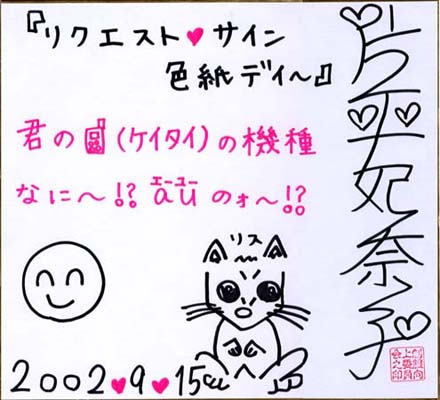 『リクエスト♥サイン
色紙デイ〜』
君の(ケイタイ)の機種
なに〜!? エーユー
auのォ〜!?
リス
2002♥9♥15
片平妃奈子